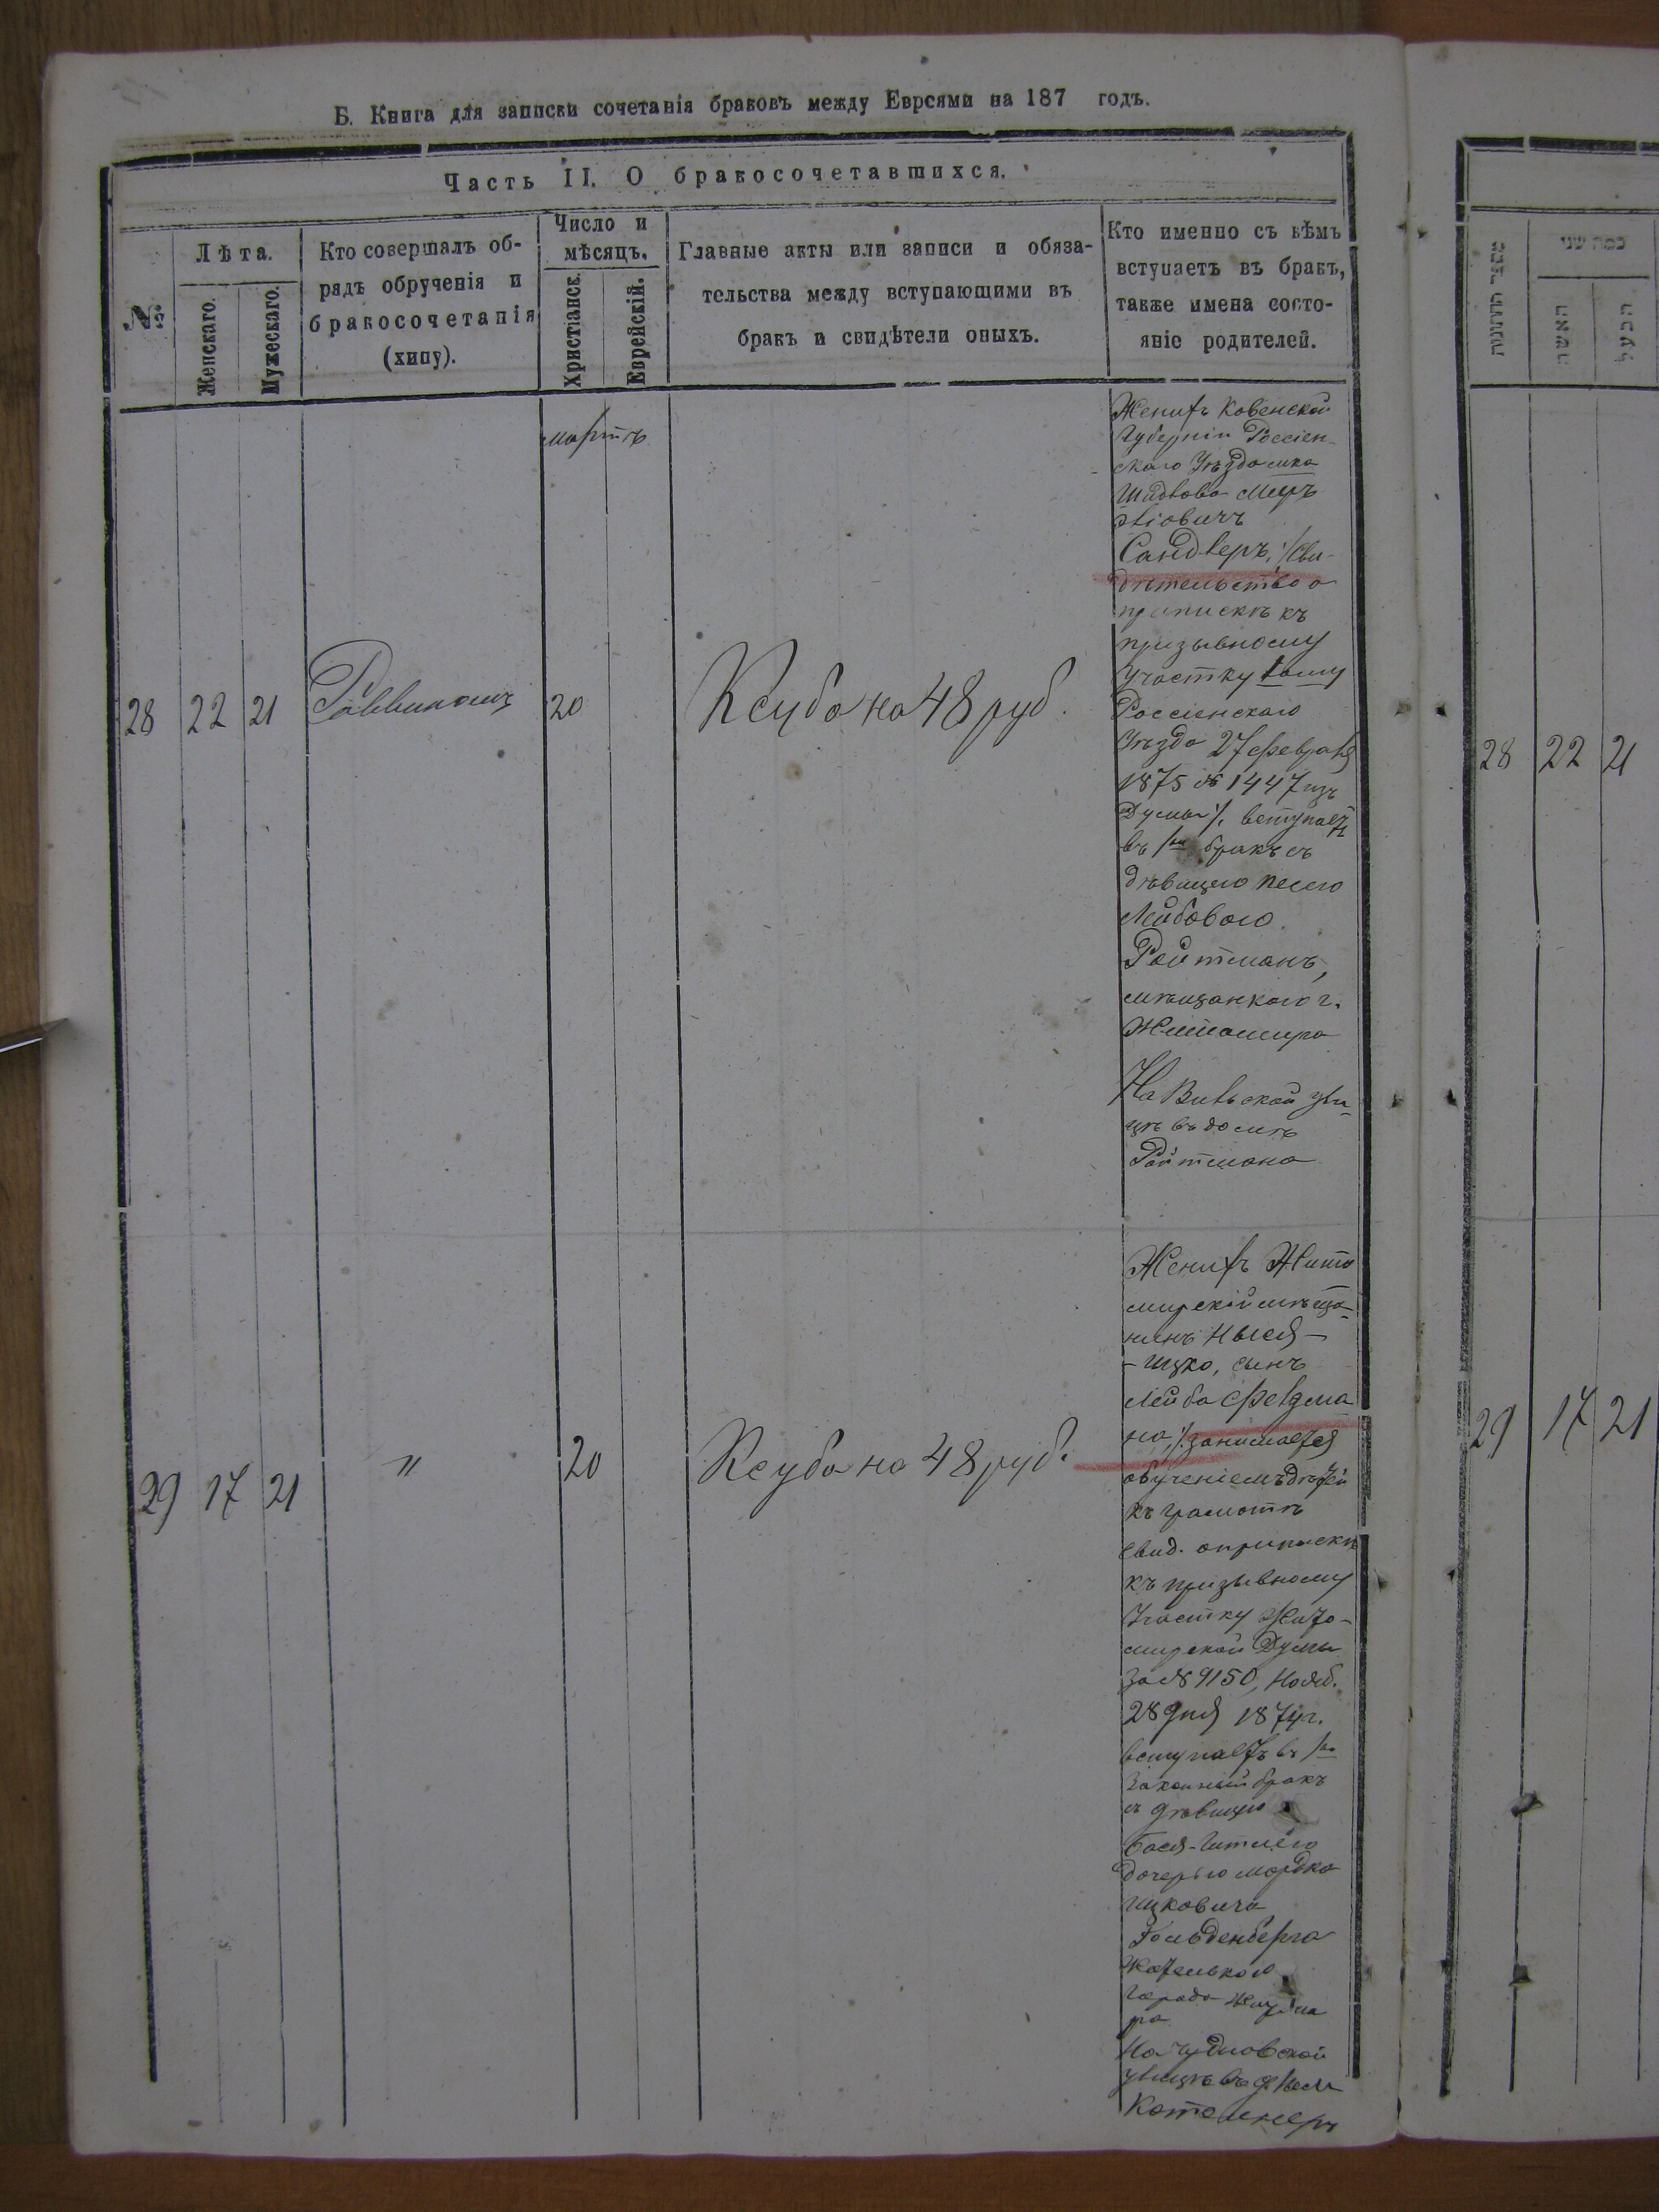 Б. Книга для записки сочетанія браковъ между Евреями на 187 годъ.
Часть II. О бракосочетавшихся.
№
Лѣта.
Женскаго.
Мужескаго.
Кто совершалъ об-
рядъ обрученія и
бракосочетанія
(хипу).
Число и
мѣсяцъ.
Христіанск.
Еврейскій.
Главные акты или записи и обяза-
тельства между вступающими въ
бракъ и свидѣтели оныхъ.
Кто именно съ кѣмъ
вступаетъ въ бракъ,
также имена состо-
яніе родителей.
мартъ
28 22 21 Раввиномъ 20 Ксуба на 48 руб.
Женихъ Ковенской
Губерніи Россіен-
скаго Уѣзда мка
Шидлова
Сандлеръ, /сви-
дѣтельство о
припискѣ къ
призывному
участку 1ому
Россіенскаго
Уѣзда 27 февраля
1875 № 1447 изъ
Думы/. вступаетъ
въ 1й бракъ съ
дѣвицею Песею
Лейбовою
Ройтманъ,
мѣщанкою г.
Житомира
На Вильской ули-
цѣ въ домѣ
Ройтмана
29 17 21 〃 20 Ксуба на 48 руб.
Женихъ Жито
мирскій мѣща-
нинъ
- Ицко, сынъ
Лейба Фельдма
на, /. занимается
обученіемъ дѣтей
къ грамотѣ
свид. о припискѣ
къ призывному
Участку Жито-
мирской Думы
за № 9150, Нояб.
28 дня 1874 г.
вступаетъ въ 1й
Законный бракъ
съ дѣвицею
Бася-
дочерью Мордка
Ицковича
Гольденберга
Жителькою
города Житоми
ра
На Чудновской
улицѣ въ д.
28 22 21
29 17 21
מספר החתונות
כמה שני
האשה
הבעל